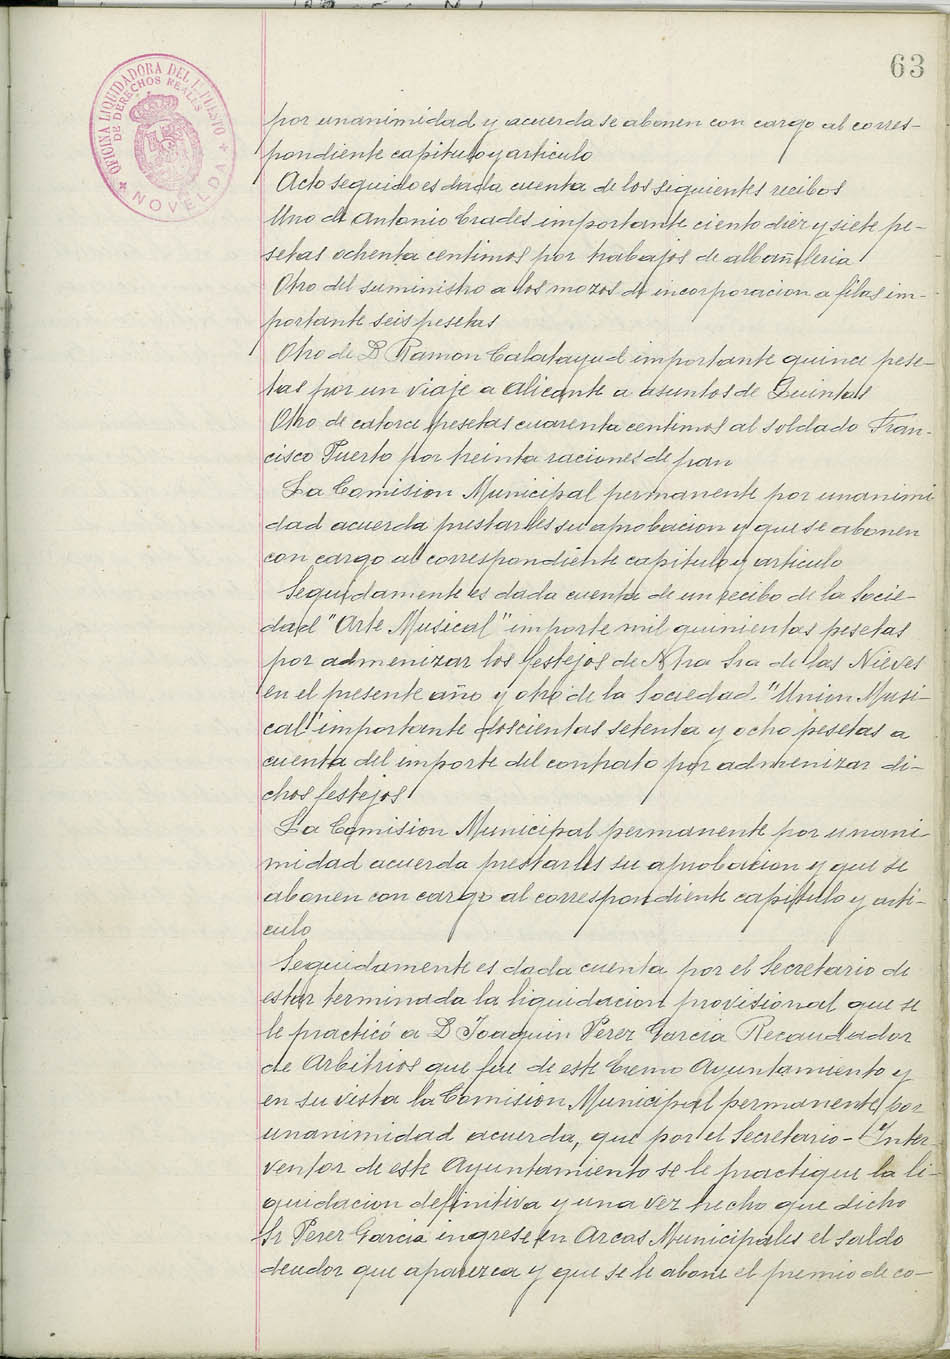 63
OFICINA LIQUIDADORA DEL IMPUESTO
DE DERECHOS REALES
NOVELDA
por unanimidad y acuerda se abonen con cargo al corres-
pondiente capitulo y articulo
Acto seguido es dada cuenta de los siguientes recibos
Uno de Antonio Crades importante ciento diez y siete pe-
setas ochenta centimos por trabajos de albañileria
Otro del suministro a los mozos de incorporacion a filas im-
portante seis pesetas
Otro de D Ramon Calatayud importante quince pese-
tas por un viaje a Alicante a asuntos de Quintas
Otro de catorce pesetas cuarenta centimos al soldado Fran-
cisco Puerto por treinta raciones de pan
La Comision Municipal permanente por unanimi
dad acuerda prestarles su aprobacion y que se abonen
con cargo al correspondiente capitulo y articulo
Seguidamente es dada cuenta de un recibo de la Socie-
dad "Arte Musical" importe mil quinientas pesetas
por admenizar los festejos de Ntra Sra de las Nieves
en el presente año y otro de la Sociedad "Union Musi-
cal" importante doscientas setenta y ocho pesetas a
cuenta del importe del contrato por admenizar di-
chos festejos
La Comision Municipal permanente por unani
midad acuerda prestarles su aprobacion y que se
abonen con cargo al correspondiente capitulo y arti-
culo
Seguidamente es dada cuenta por el Secretario de
estar terminada la liquidacion provisional que se
le practicó a D Joaquin Perez Garcia Recaudador
de Arbitrios que fue de este Excmo Ayuntamiento y
en su vista la Comision Municipal permanente por
unanimidad acuerda, que por el Secretario-Inter
ventor de este Ayuntamiento se le practique la li-
quidacion definitiva y una vez hecho que dicho
Sr Perez Garcia ingrese en Arcas Municipales el saldo
deudor que aparezca y que se le abone el premio de co-